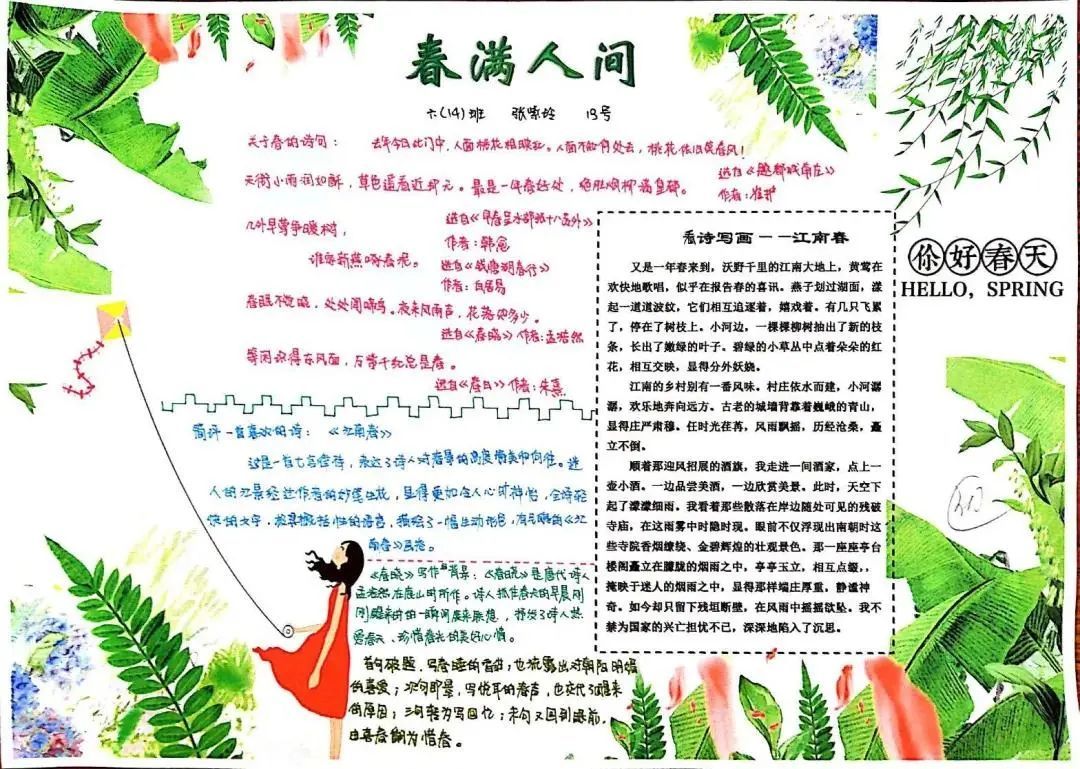 春满人间
六(14)班 张紫玲 13号
关于春的诗句： 去年今日此门中，人面桃花相映红。人面不知何处去，桃花依旧笑春风！
选自《题都城南庄》
作者：崔护
天街小雨润如酥，草色遥看近却无。最是一年春好处，绝胜烟柳满皇都。
选自《早春呈水部张十八员外》
作者：韩愈
几处早莺争暖树，
谁家新燕啄春泥。
选自《钱塘湖春行》
作者：白居易
春眠不觉晓，处处闻啼鸟。夜来风雨声，花落知多少。
选自《春晓》作者：孟浩然
等闲识得东风面，万紫千红总是春。
选自《春日》作者：朱熹
简评一首喜欢的诗：《江南春》
这是一首七言绝诗，表达了诗人对春景的高度赞美和向往。迷
人的江景经过作者的妙笔生花，显得更加令人心旷神怡，全诗轻
快的文字，极具概括性的语言，描绘了一幅生动形象，有气魄的《江
南春》画卷。
《春晓》写作背景：《春晓》是唐代诗人
孟浩然在鹿山时所作。诗人抓住春天的早晨刚
刚醒来时的一瞬间展来联想，抒绘了诗人热
爱春天，珍惜春光的美好心情。
首句破题，写春睡的香甜；也流露出对朝阳明媚
的喜爱；次句即景，写悦耳的春声，也交代了醒来
的原因；三句转为写回忆；末句又回到眼前，
由喜春翻为惜春。
看诗写画－－江南春
又是一年春来到，沃野千里的江南大地上，黄莺在
欢快地歌唱，似乎在报告春的喜讯。燕子划过湖面，漾
起一道道波纹，它们相互追逐着，嬉戏着。有几只飞累
了，停在了树枝上。小河边，一棵棵柳树抽出了新的枝
条，长出了嫩绿的叶子。碧绿的小草丛中点着朵朵的红
花，相互交映，显得分外妖娆。
江南的乡村别有一番风味。村庄依水而建，小河潺
潺，欢乐地奔向远方。古老的城墙背靠着巍峨的青山，
显得庄严肃穆。任时光荏苒，风雨飘摇，历经沧桑，矗
立不倒。
顺着那迎风招展的酒旗，我走进一间酒家，点上一
壶小酒。一边品尝美酒，一边欣赏美景。此时，天空下
起了濛濛细雨。我看着那些散落在岸边随处可见的残破
寺庙，在这雨雾中时隐时现。眼前不仅浮现出南朝时这
些寺院香烟缭绕、金碧辉煌的壮观景色。那一座座亭台
楼阁矗立在朦胧的烟雨之中，亭亭玉立，相互点缀，，
掩映于迷人的烟雨之中，显得那样端庄厚重，静谧神
奇。如今却只留下残垣断壁，在风雨中摇摇欲坠。我不
禁为国家的兴亡担忧不已，深深地陷入了沉思。
你好春天
HELLO, SPRING